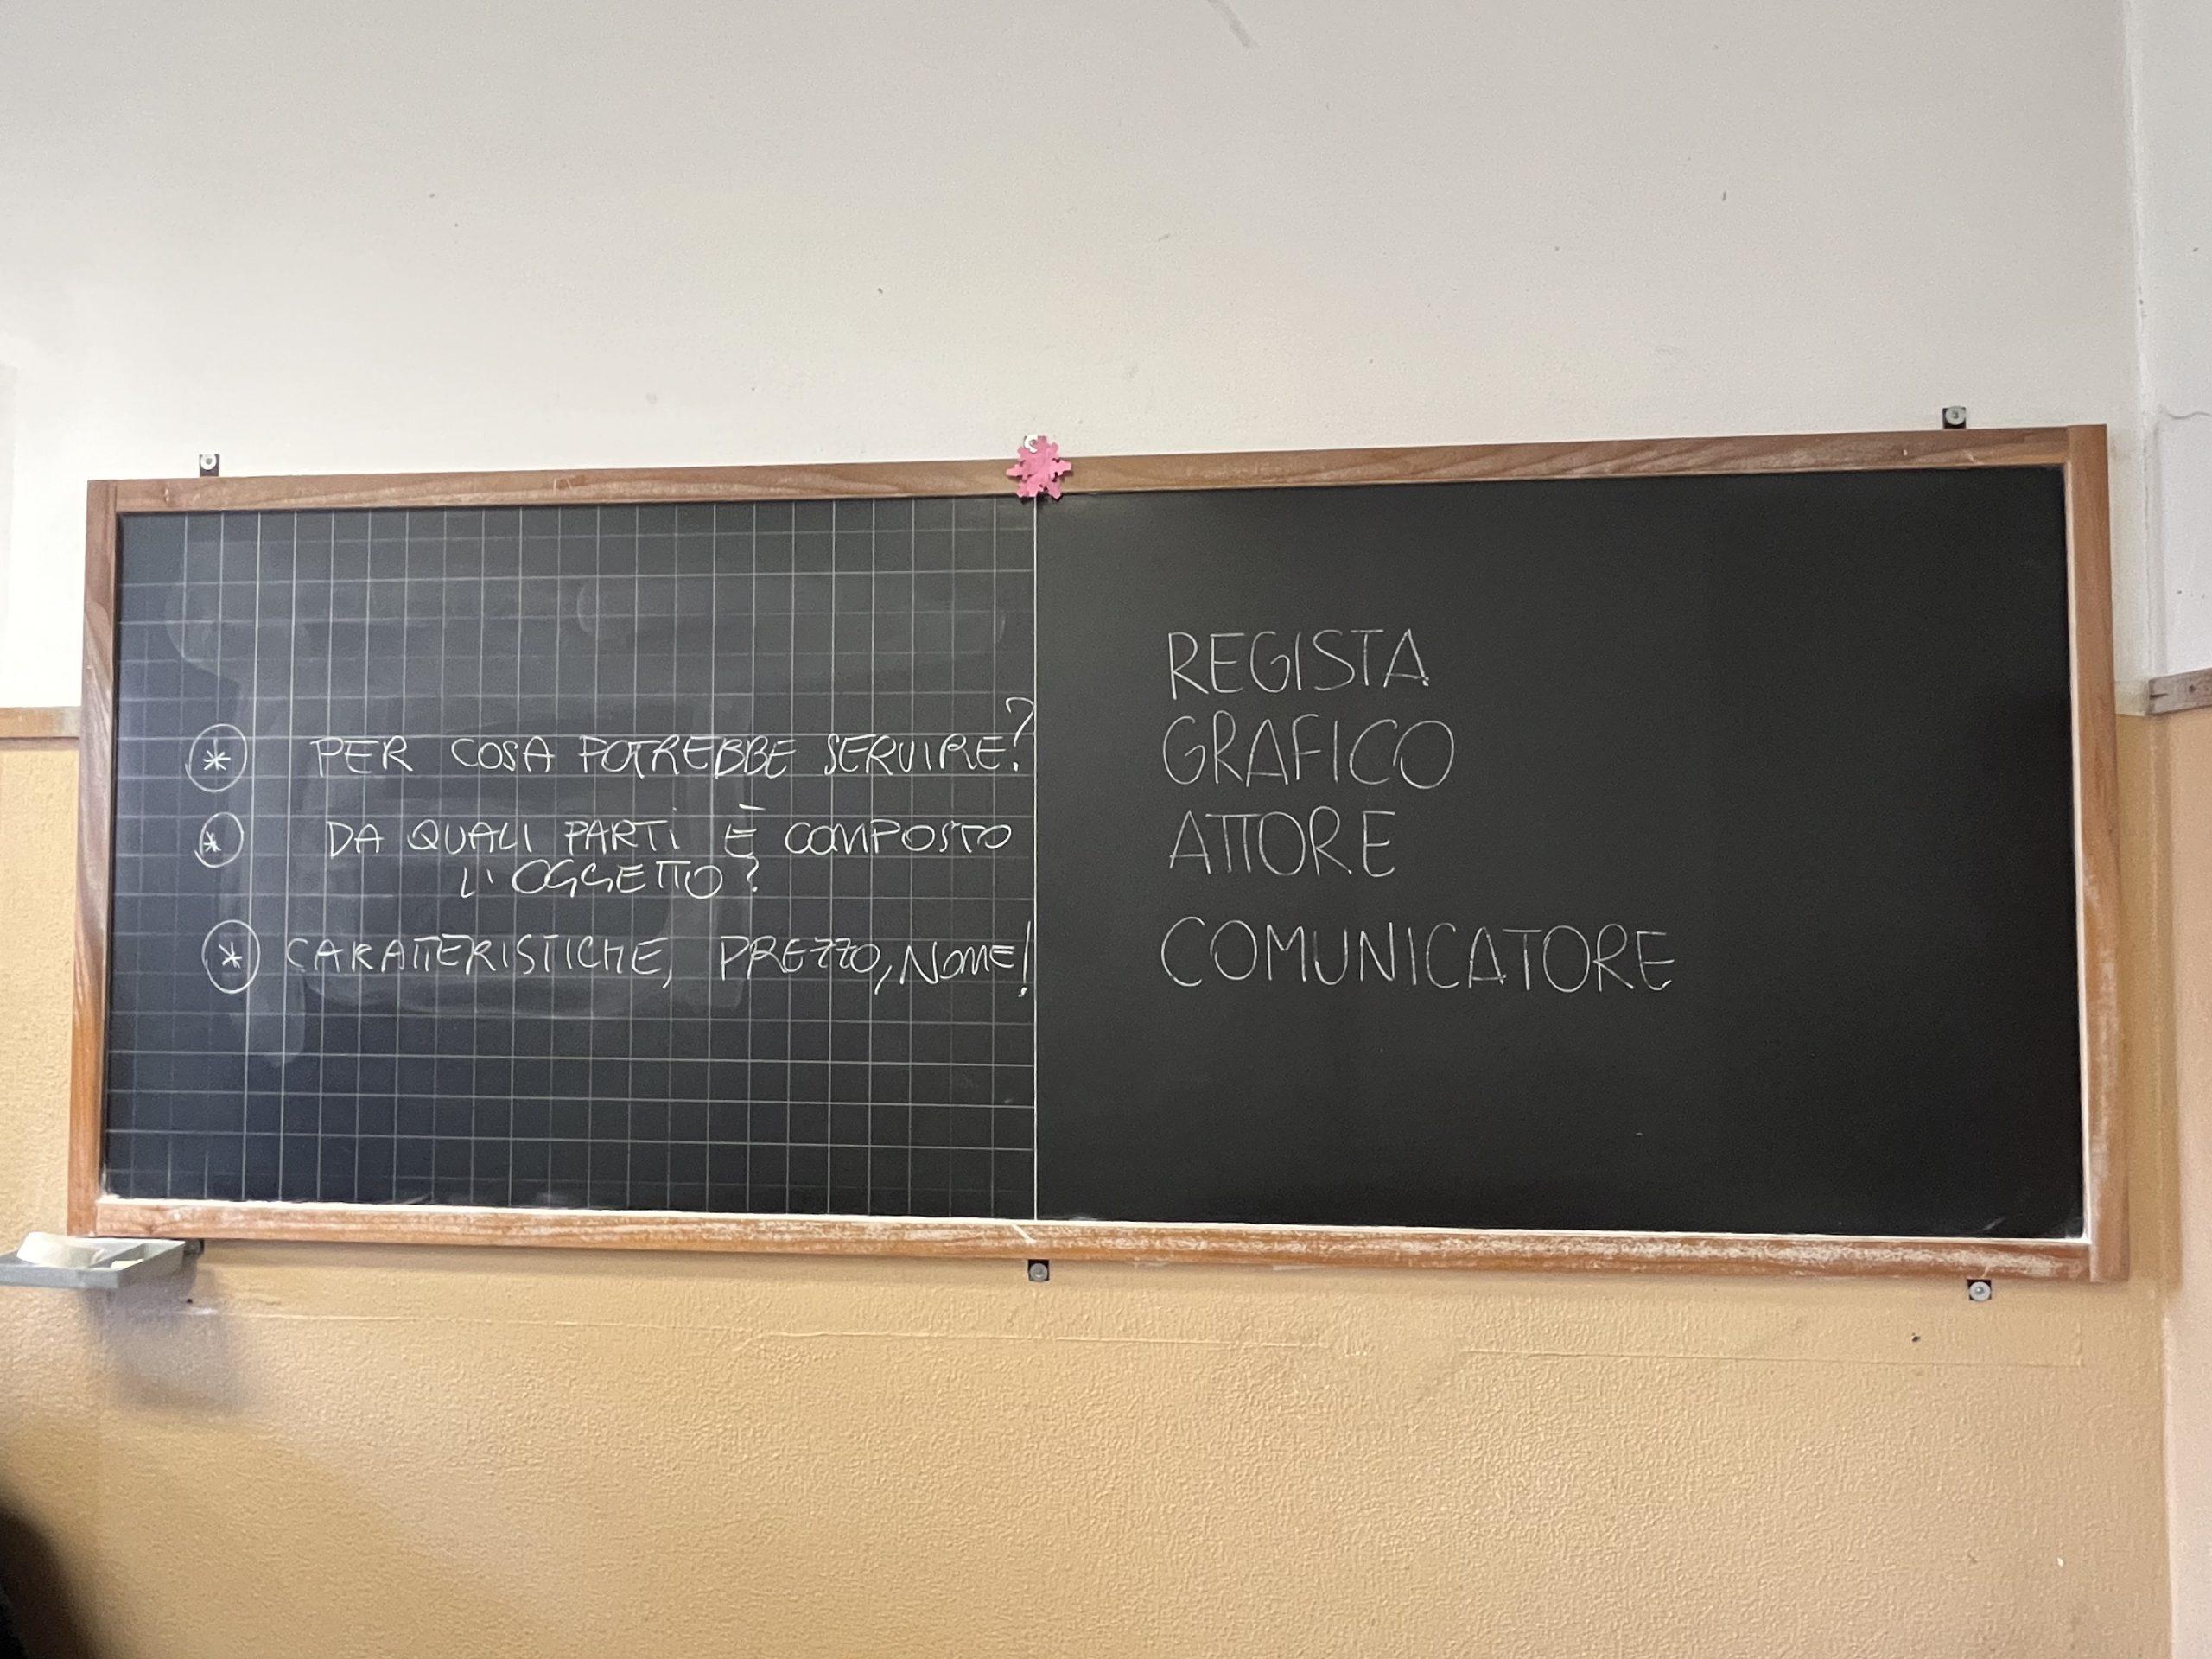 * PER COSA POTREBBE SERVIRE?
* DA QUALI PARTI È COMPOSTO
L'OGGETTO?
* CARATTERISTICHE, PREZZO, NOME!
REGISTA
GRAFICO
ATTORE
COMUNICATORE